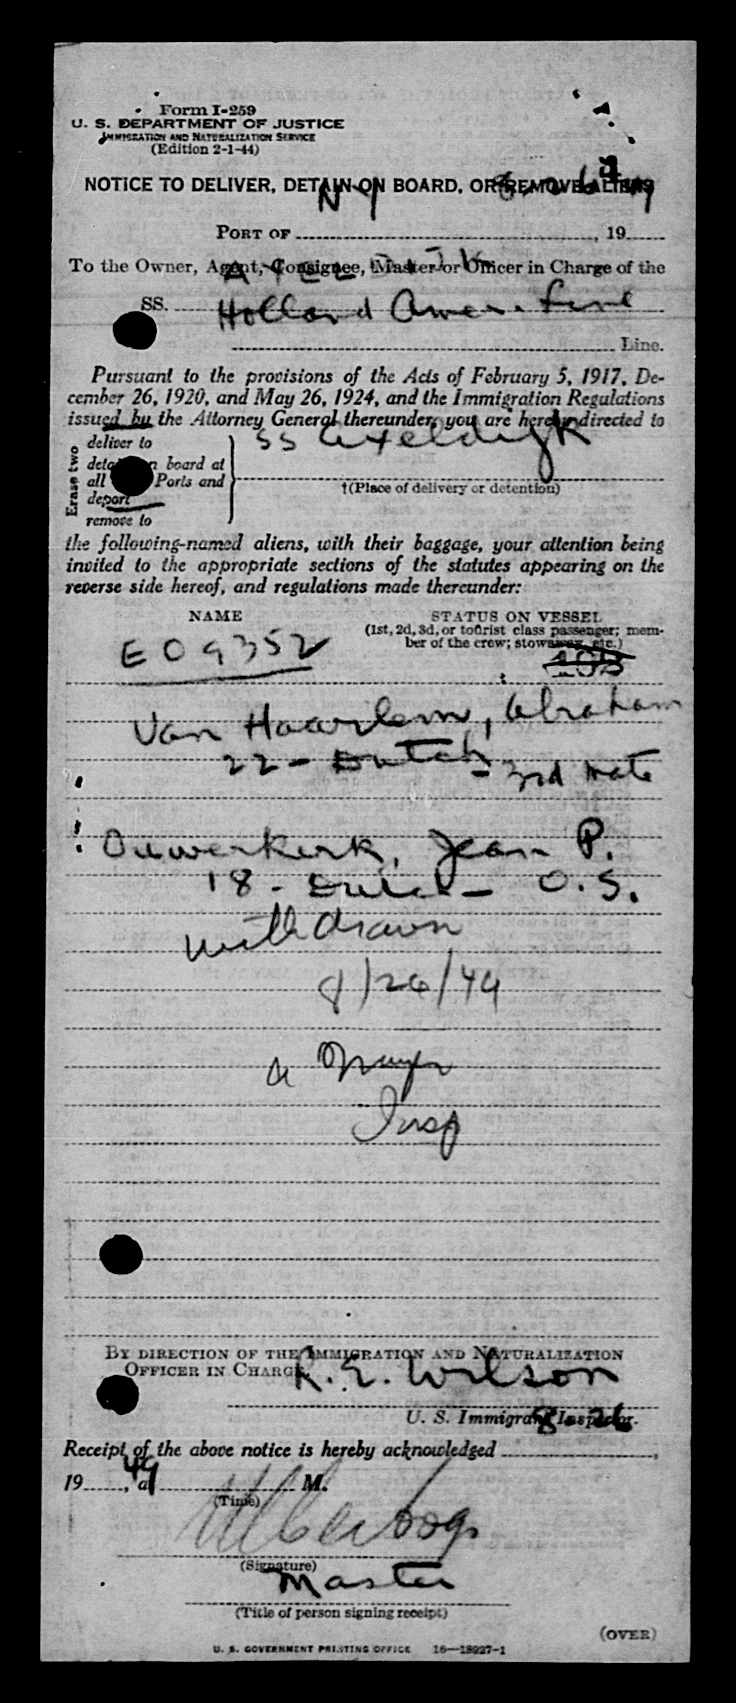 Form I-259
U. S. DEPARTMENT OF JUSTICE
IMMIGRATION AND NATURALIZATION SERVICE
(Edition 2-1-44)
NOTICE TO DELIVER, DETAIN ON BOARD, OR REMOVE ALIENS
NY 8-26 49
PORT OF , 19
To the Owner, Agent, Consignee, Master or Officer in Charge of the
Axeldijk
SS. Holland Amer. Line
Line.
Pursuant to the provisions of the Acts of February 5, 1917, De-
cember 26, 1920, and May 26, 1924, and the Immigration Regulations
issued by the Attorney General thereunder, you are hereby directed to
SS Axeldijk
Erase two
deliver to
detain on board at
all Ports and
deport
remove to
†(Place of delivery or detention)
the following-named aliens, with their baggage, your attention being
invited to the appropriate sections of the statutes appearing on the
reverse side hereof, and regulations made thereunder:
NAME STATUS ON VESSEL
(1st, 2d, 3d, or tourist class passenger; mem-
ber of the crew; stowaway, etc.)
E09352
Van Haarlem, Abraham
22 - Dutch - 3rd Mate
Ouwerkerk, Jean P.
18 - Dutch - O.S.
withdrawn
8/26/49
Insp
BY DIRECTION OF THE IMMIGRATION AND NATURALIZATION
OFFICER IN CHARGE
R. E. Wilson
U. S. Immigrant Inspector.
8-26
Receipt of the above notice is hereby acknowledged ,
19 49, at M.
(Time)
(Signature)
Master
(Title of person signing receipt)
(OVER)
U. S. GOVERNMENT PRINTING OFFICE 16—18927-1